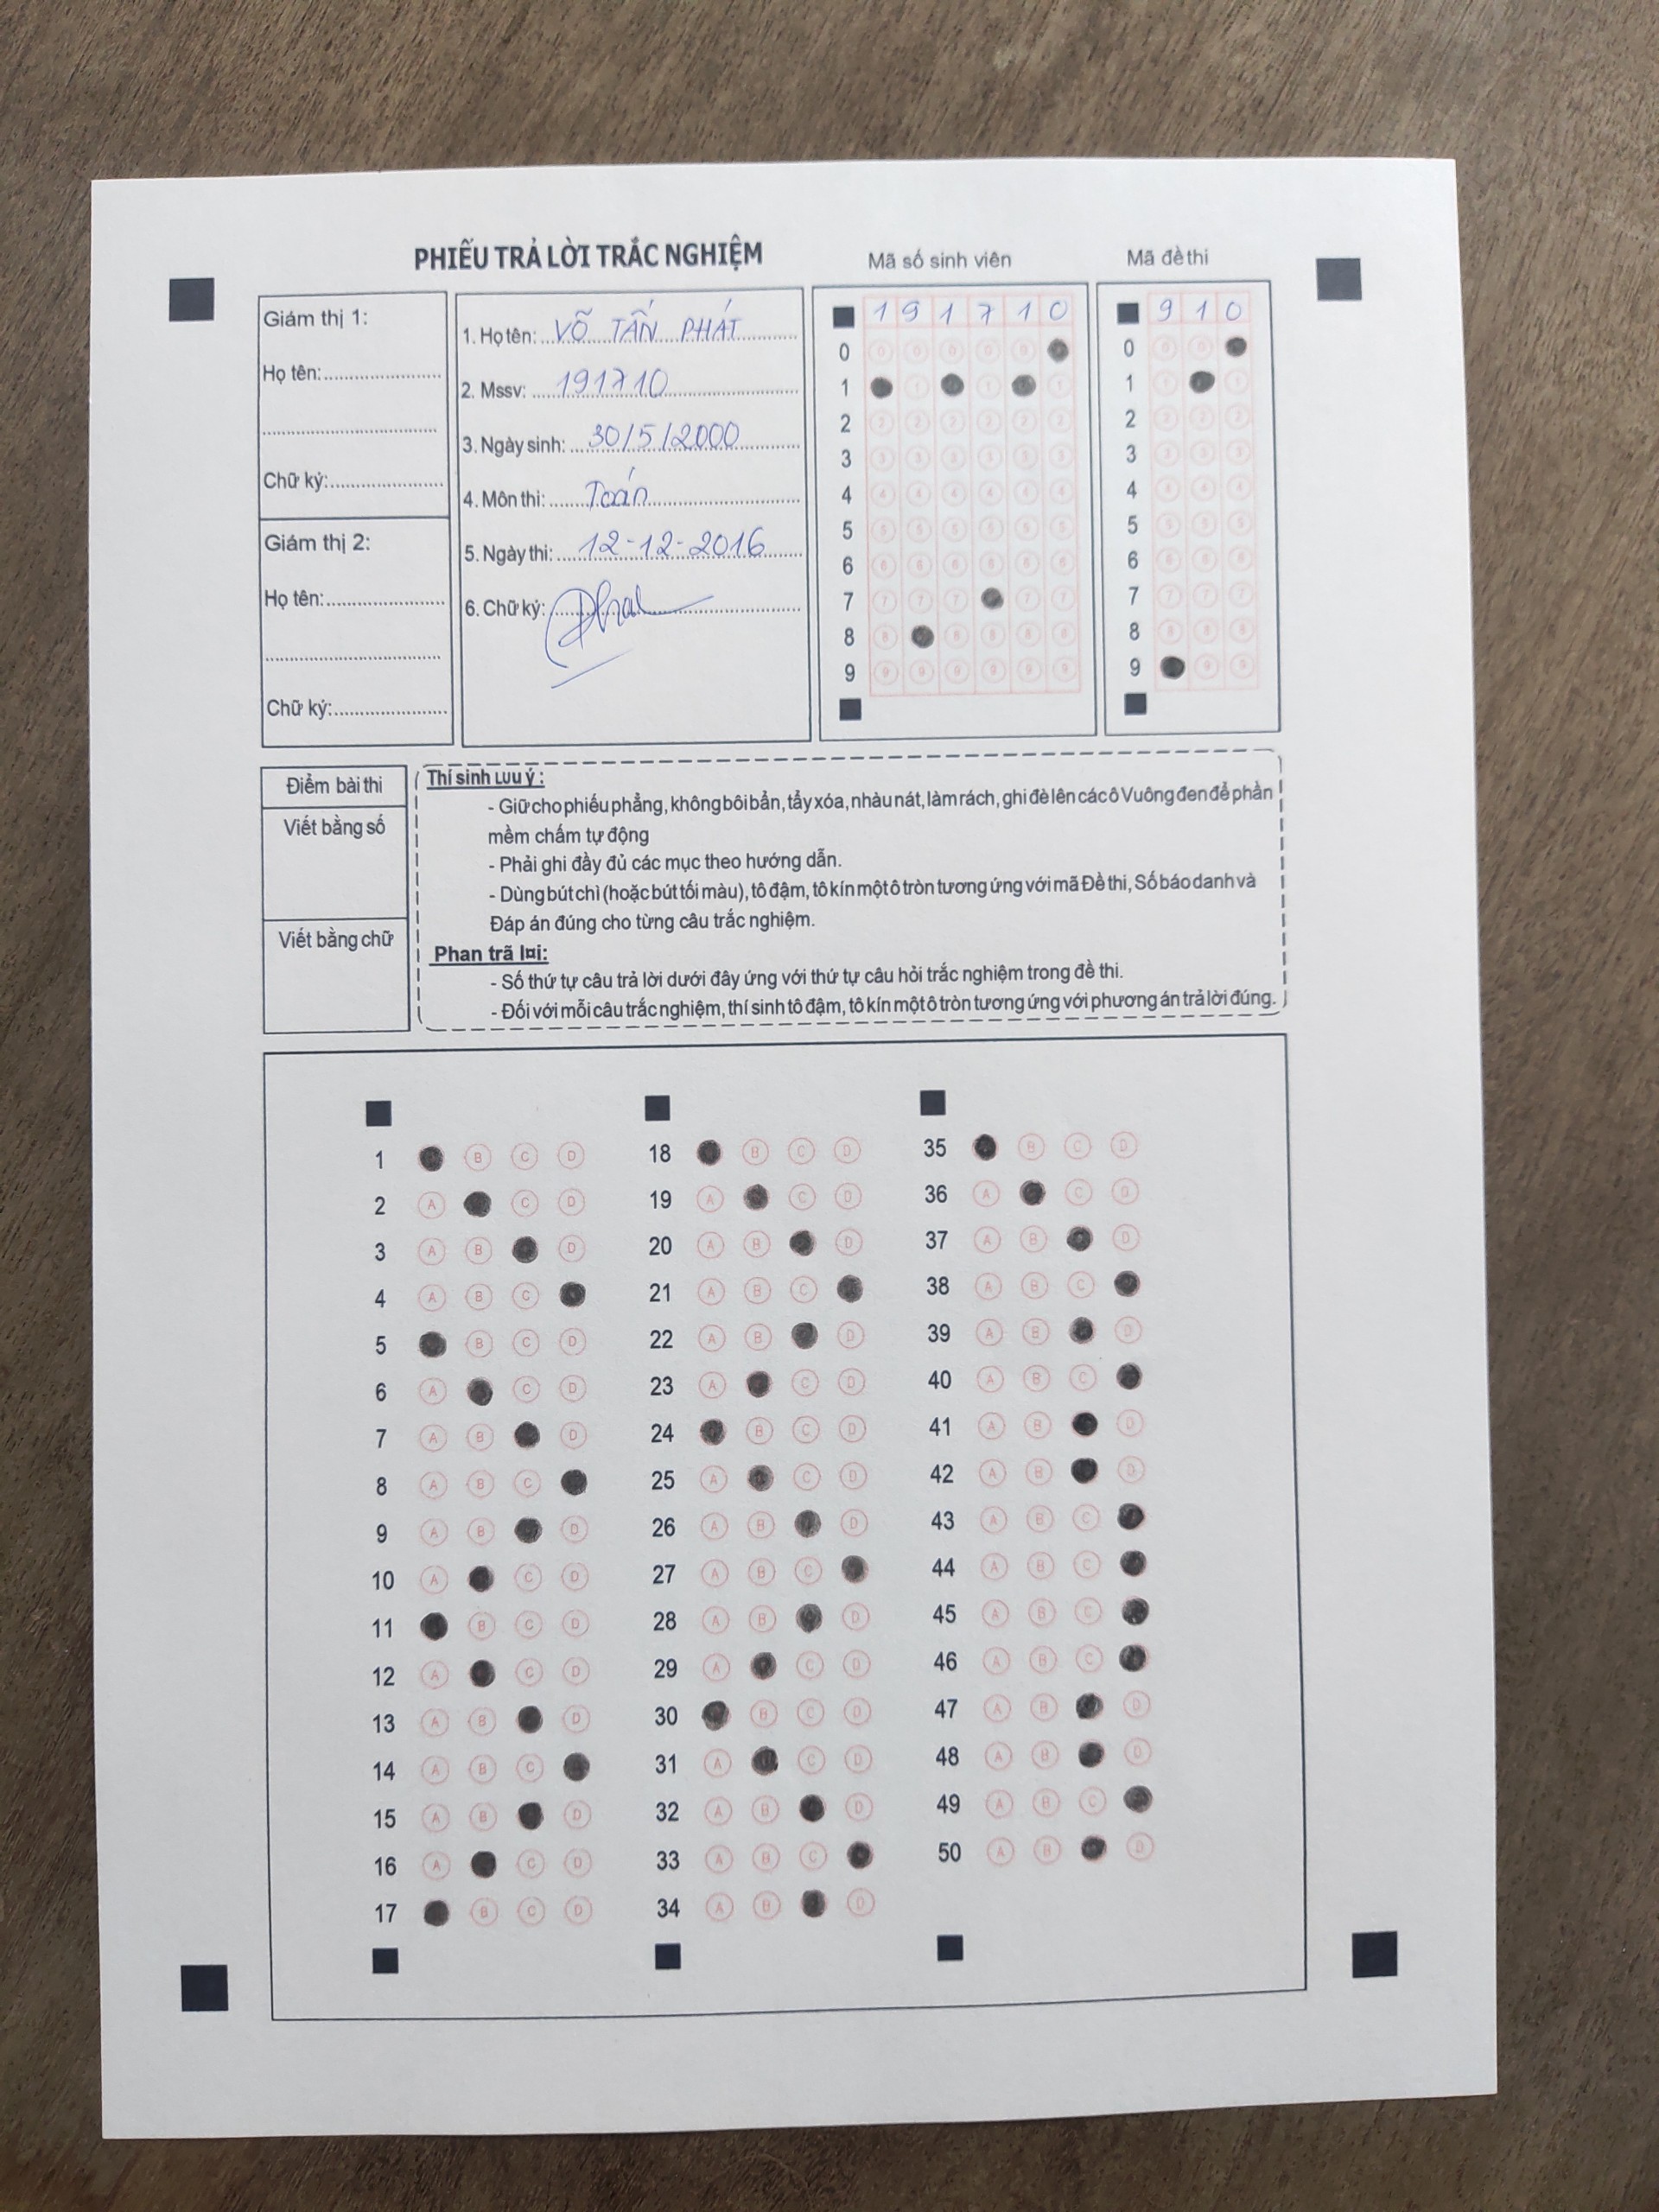 PHIẾU TRẢ LỜI TRẮC NGHIỆM
Mã số sinh viên
Mã đề thi
Giám thị 1:
Họ tên:
Chữ ký:
Giám thị 2:
Họ tên:
Chữ ký:
1. Họ tên: VÕ TẤN PHÁT
2. Mssv: 191710
3. Ngày sinh: 30/5/2000
4. Môn thi: Toán
5. Ngày thi: 12-12-2016
6. Chữ ký: Phat
1 9 1 7 1 0
0 0 0 0 0 0
1 1 1
2 2 2 2 2 2 2
3 3 3 3 3 3 3
4 4 4 4 4 4 4
5 5 5 5 5 5 5
6 6 6 6 6 6 6
7 7 7 7 7 7
8 8 8 8 8 8
9 9 9 9 9 9 9
9 1 0
0 0 0
1 1 1
2 2 2 2
3 3 3 3
4 4 4 4
5 5 5 5
6 6 6 6
7 7 7 7
8 8 8 8
9 9 9
Điểm bài thi
Viết bằng số
Viết bằng chữ
Thí sinh Lưu ý :
- Giữ cho phiếu phẳng, không bôi bẩn, tẩy xóa, nhàu nát, làm rách, ghi đè lên các ô Vuông đen để phần
mềm chấm tự động
- Phải ghi đầy đủ các mục theo hướng dẫn.
- Dùng bút chì (hoặc bút tối màu), tô đậm, tô kín một ô tròn tương ứng với mã Đề thi, Số báo danh và
Đáp án đúng cho từng câu trắc nghiệm.
Phan trã l¤i:
- Số thứ tự câu trả lời dưới đây ứng với thứ tự câu hỏi trắc nghiệm trong đề thi.
- Đối với mỗi câu trắc nghiệm, thí sinh tô đậm, tô kín một ô tròn tương ứng với phương án trả lời đúng.
1 B C D
2 A C D
3 A B D
4 A B C
5 B C D
6 A C D
7 A B D
8 A B C
9 A B D
10 A C D
11 B C D
12 A C D
13 A B D
14 A B C
15 A B D
16 A C D
17 B C D
18 B C D
19 A C D
20 A B D
21 A B C
22 A B D
23 A C D
24 B C D
25 A C D
26 A B D
27 A B C
28 A B D
29 A C D
30 B C D
31 A C D
32 A B D
33 A B C
34 A B D
35 B C D
36 A C D
37 A B D
38 A B C
39 A B D
40 A B C
41 A B D
42 A B D
43 A B C
44 A B C
45 A B C
46 A B C
47 A B D
48 A B D
49 A B C
50 A B D